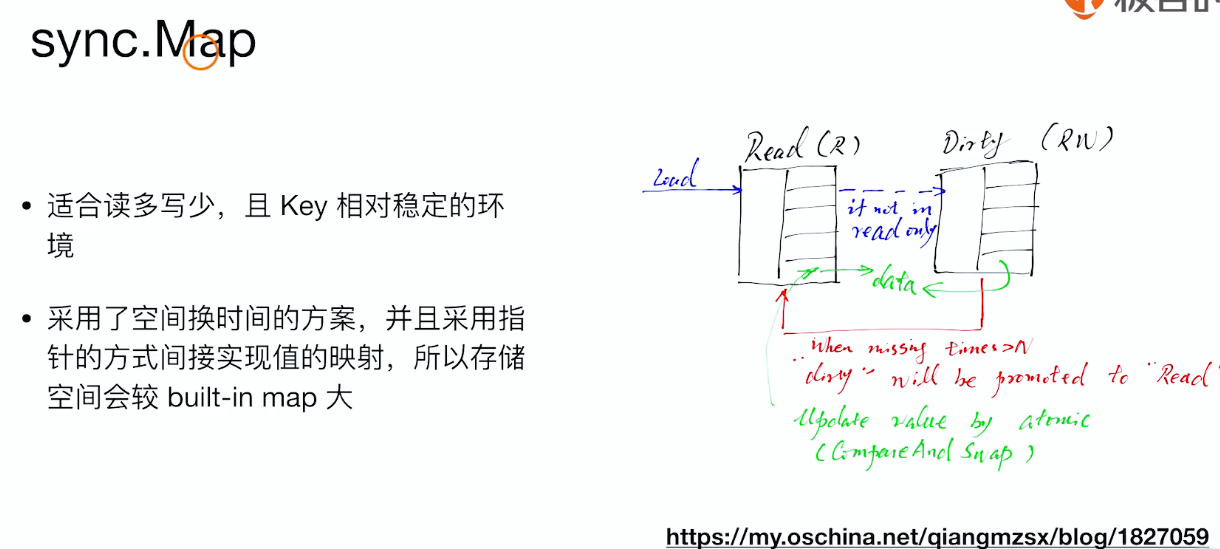 sync.Map
适合读多写少，且 Key 相对稳定的环
境
采用了空间换时间的方案，并且采用指
针的方式间接实现值的映射，所以存储
空间会较 built-in map 大
Read (R)
Dirty (RW)
Load
if not in
read only
data
"When missing times>N
dirty" will be promoted to "Read"
Update value by atomic
(CompareAndSwap)
https://my.oschina.net/qiangmzsx/blog/1827059